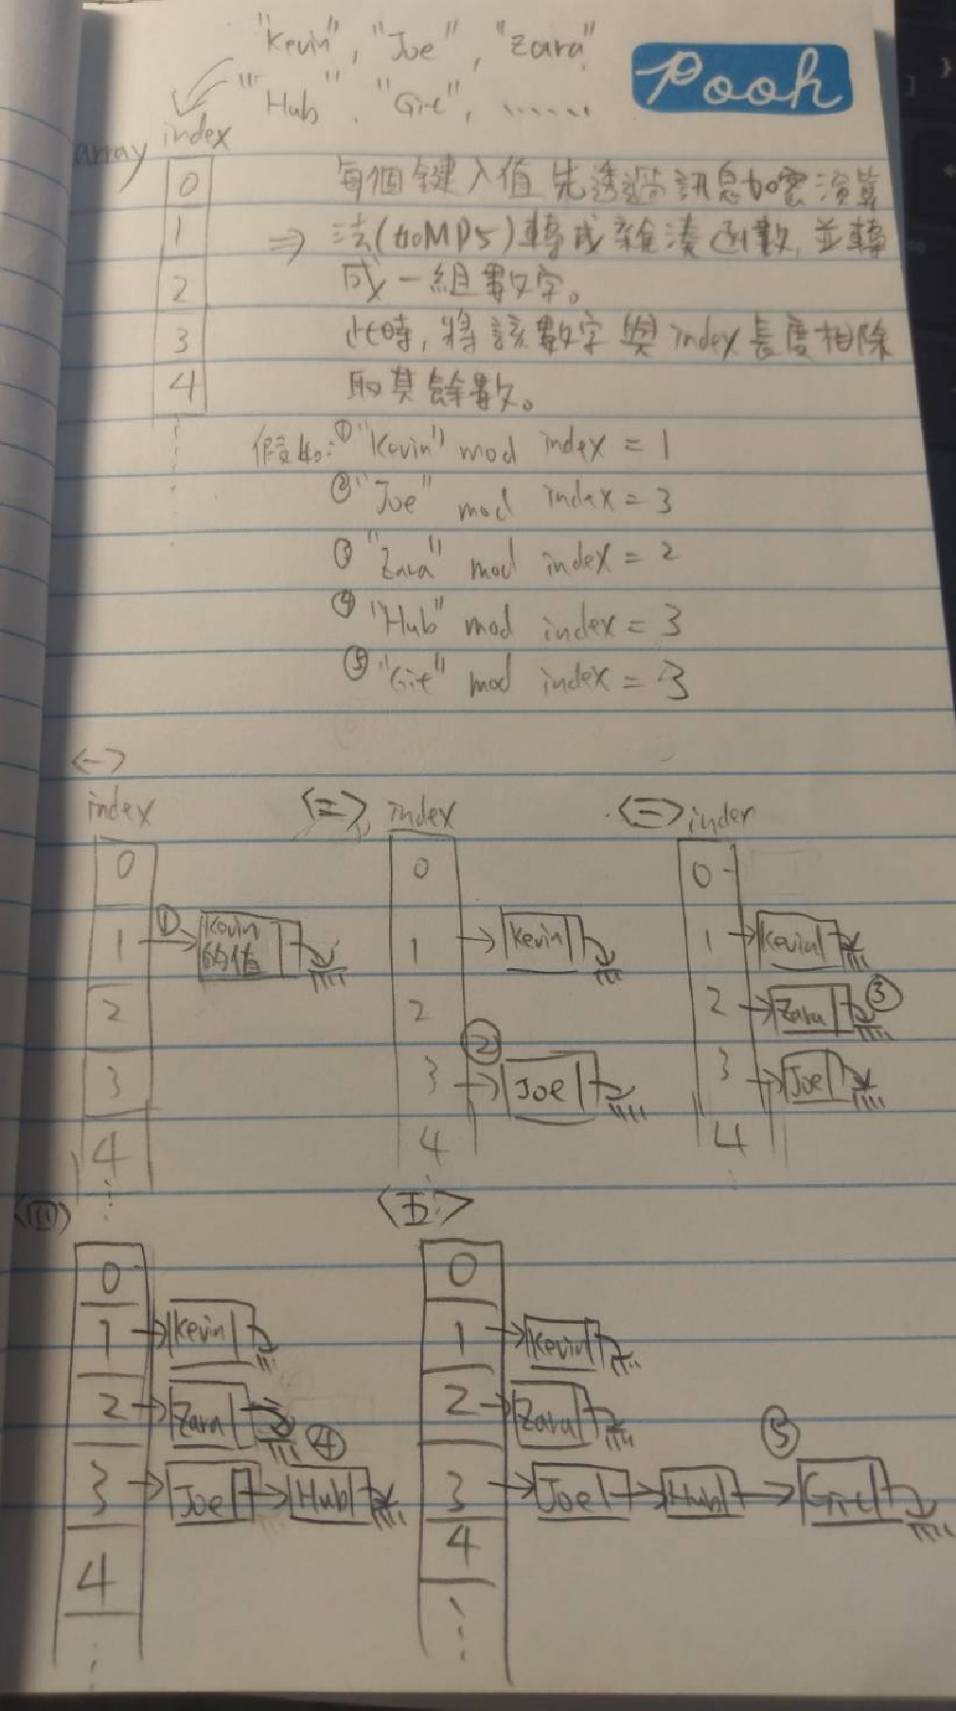 "Kevin", "Joe", "Zara"
"Hub", "Git", ......
Pooh
array index
0
1
2
3
4
每個鍵入值先透過訊息加密演算
⇒ 法(如MD5)轉成雜湊函數,並轉
成一組數字。
此時,將該數字與index長度相除
取其餘數。
假如:①"Kevin" mod index = 1
②"Joe" mod index = 3
③"Zara" mod index = 2
④"Hub" mod index = 3
⑤"Git" mod index = 3
<一>
index
0
1 ① Kevin的值
2
3
4
<二> index
0
1 Kevin
2
3 ② Joe
4
<三> index
0
1 Kevin
2 Zara ③
3 Joe
4
<四>
0
1 Kevin
2 Zara
3 Joe Hub ④
4
<五>
0
1 Kevin
2 Zara
3 Joe Hub Git ⑤
4